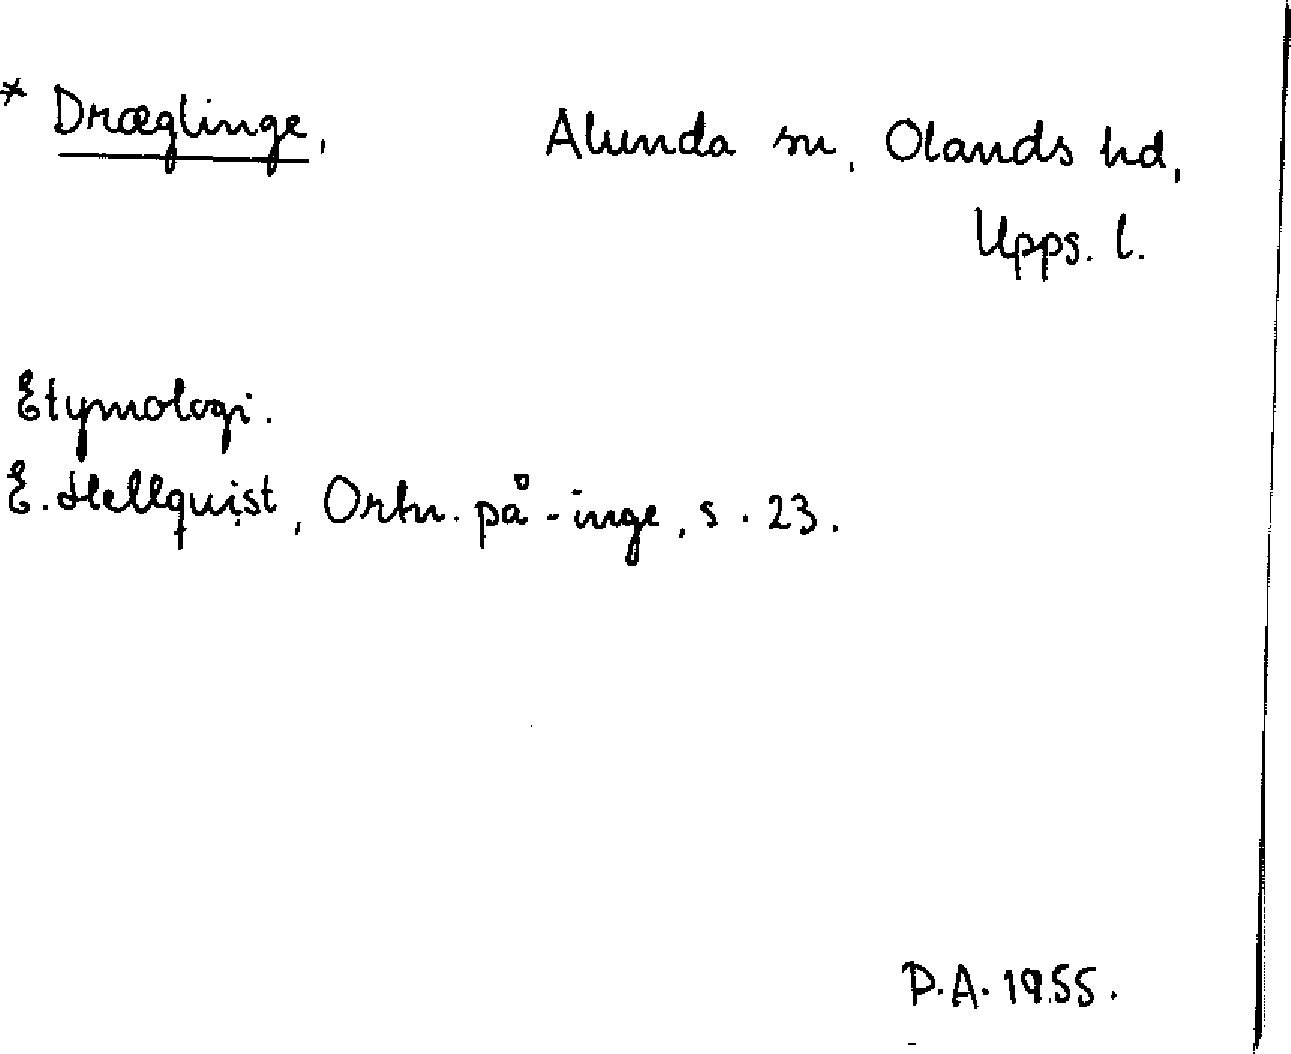 * Dræglinge, Alunda sn, Olands hd,
Upps. l.
Etymologi.
E. Hellquist, Ortn. på -inge, s. 23.
P.A. 1955.